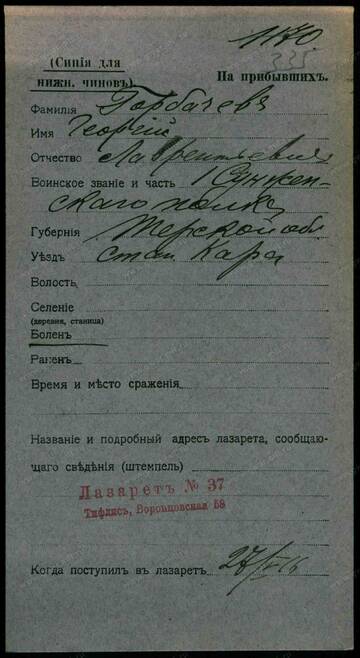 1170
335
(Синія для
нижн. чиновъ)
На прибывшихъ.
Фамилія Горбачевъ
Имя Георгій
Отчество Лаврентьевичъ
Воинское званіе и часть 1 Сунжен-
скаго полка
Губернія Терской обл
Уѣздъ стан. Кара
Волость
Селеніе
(деревня, станица)
Боленъ
Раненъ
Время и мѣсто сраженія
Названіе и подробный адресъ лазарета, сообщаю-
щаго свѣдѣнія (штемпель)
Лазаретъ № 37
Тифлисъ, Воронцовская 58
Когда поступилъ въ лазаретъ 27/V 16